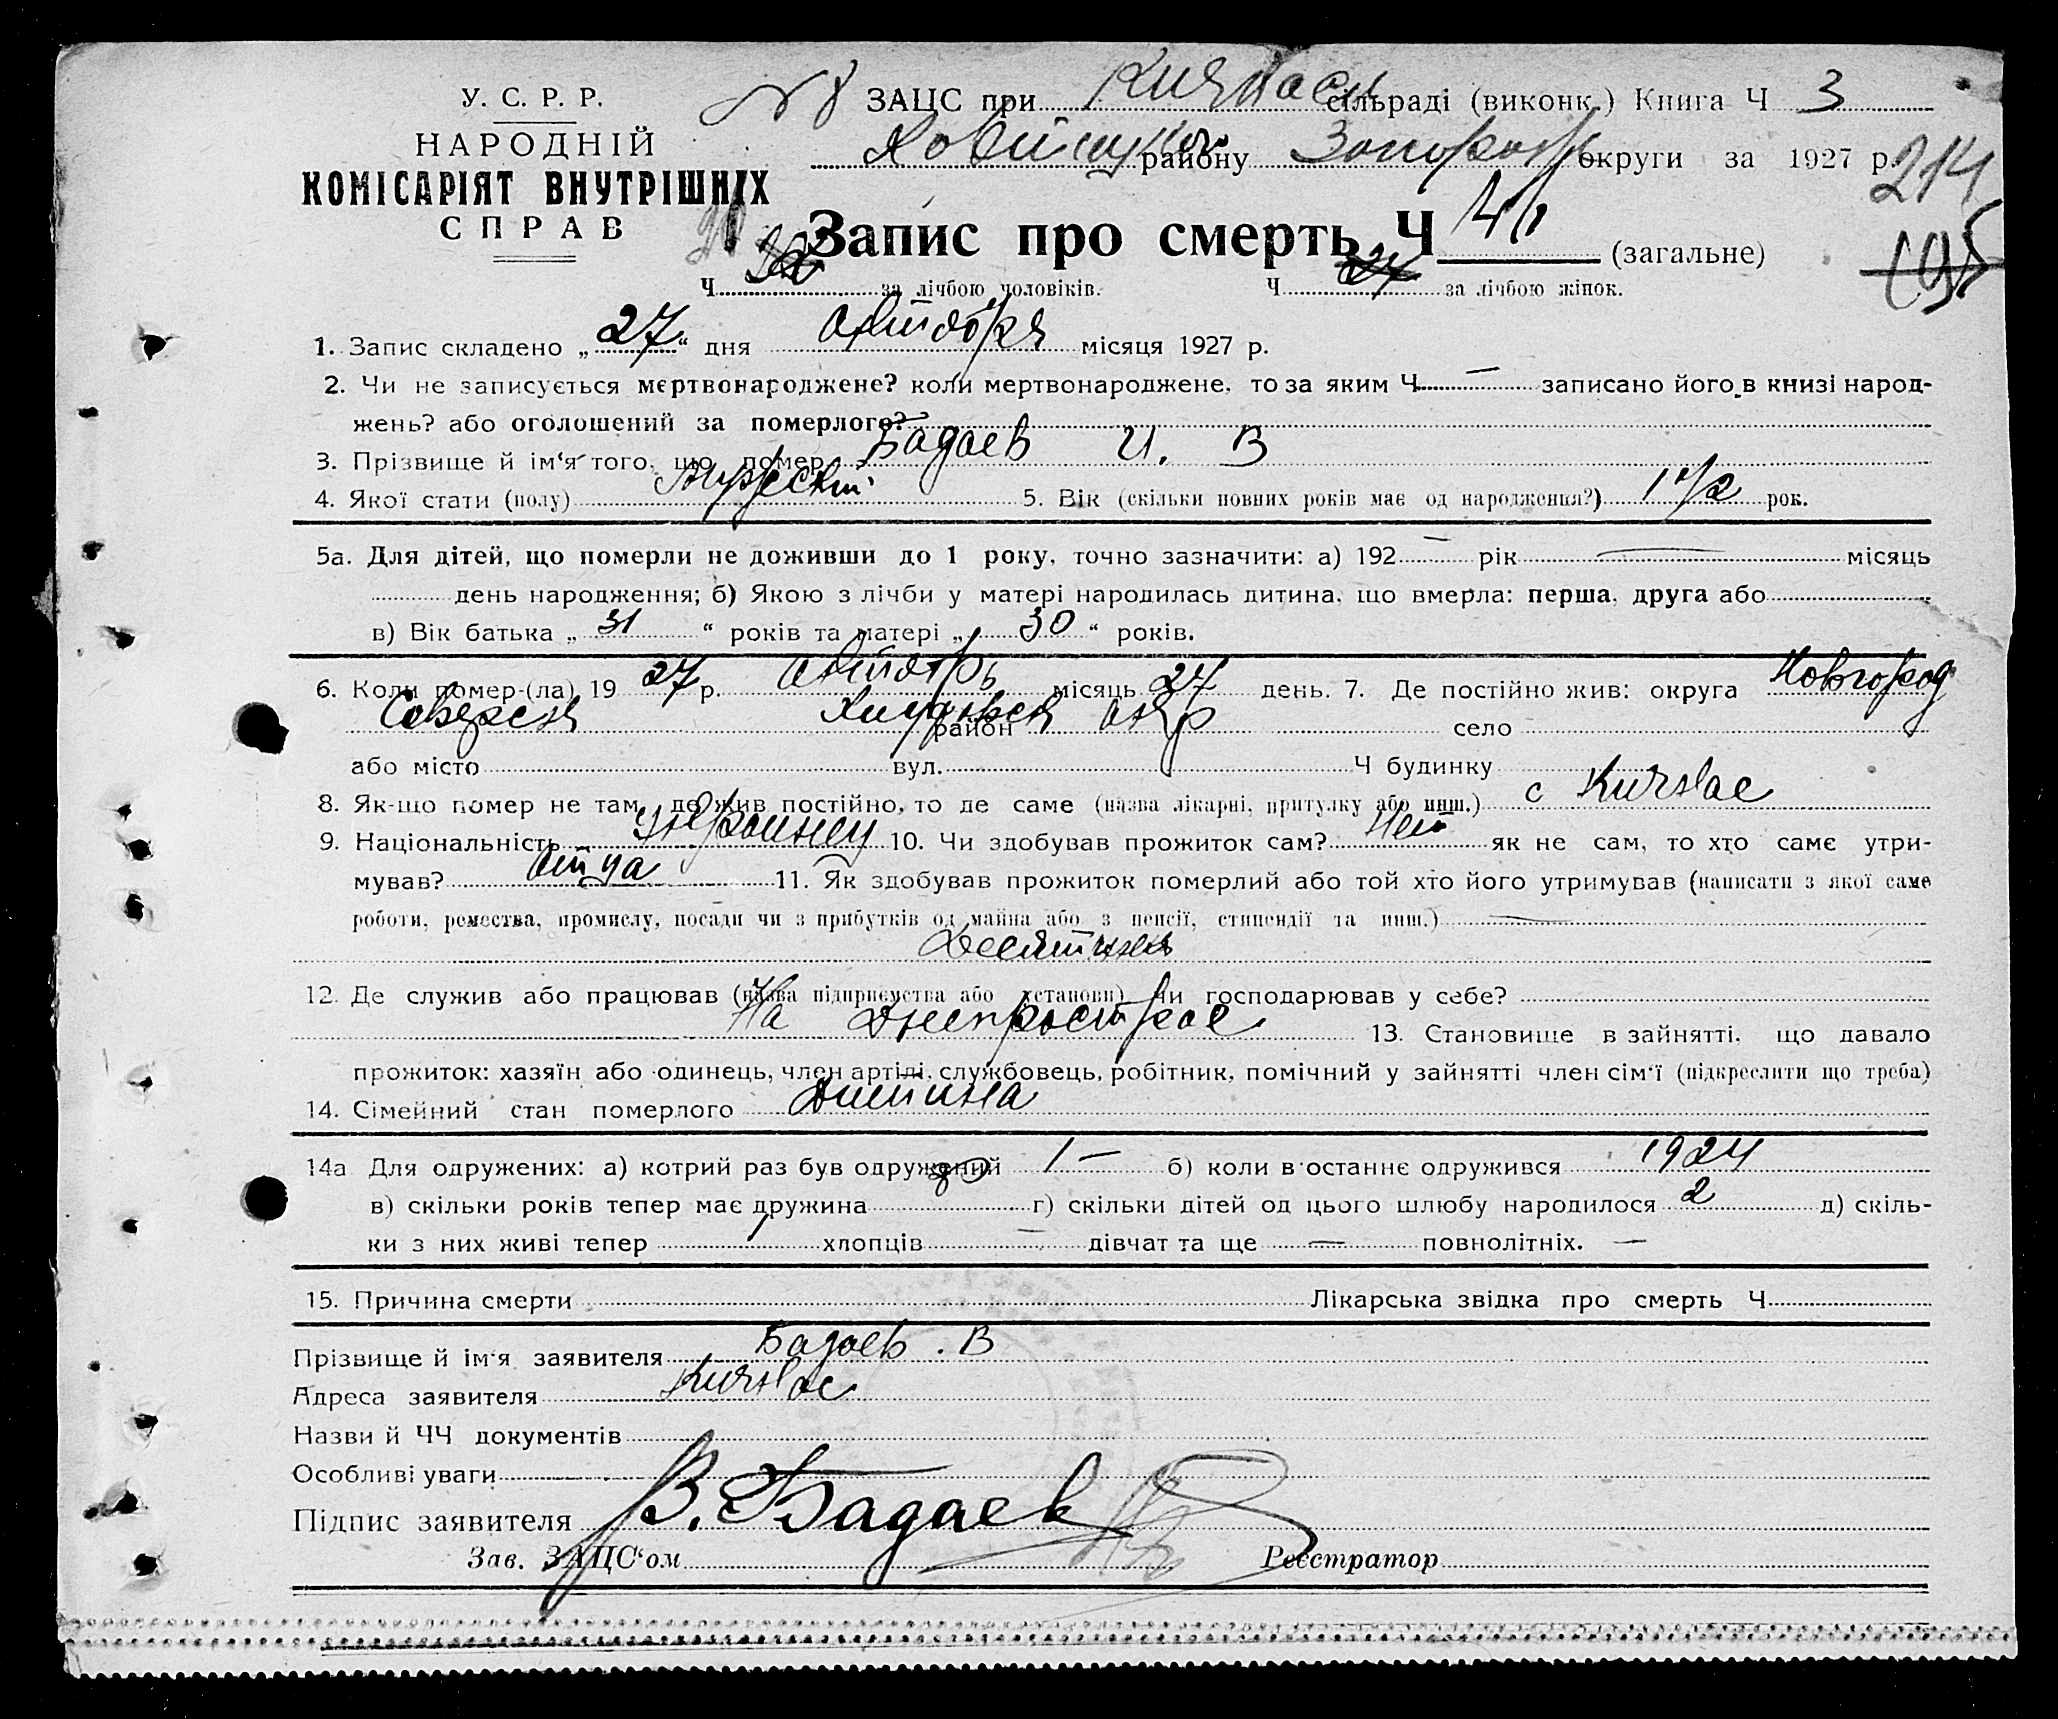 У. С. Р. Р.
НАРОДНІЙ
КОМІСАРІЯТ ВНУТРІШНІХ
СПРАВ
ЗАЦС при Кичкаск сільраді (виконк.) Книга Ч 3
району округи за 1927 р. 214
195
Запис про смерть Ч (загальне)
Ч за лічбою чоловіків. Ч 27 за лічбою жінок.
1. Запис складено „27“ дня Октября місяця 1927 р.
2. Чи не записується мертвонароджене? коли мертвонароджене, то за яким Ч — записано його в книзі народ-
жень? або оголошений за померлого?
3. Прізвище й ім‘я того, що помер Бадаев И. В
4. Якої стати (полу) Мужеский 5. Вік (скільки повних років має од народження?) 1 1/2 рок.
5а. Для дітей, що померли не доживши до 1 року, точно зазначити: а) 192 — рік — місяць
день народження; б) Якою з лічби у матері народилась дитина, що вмерла: перша, друга або
в) Вік батька „31“ років та матері „30“ років.
6. Коли помер-(ла) 19 27 р. Октябрь місяць 27 день. 7. Де постійно жив: округа Новгород
Северск район село
або місто вул. Ч будинку
8. Як-що помер не там, де жив постійно, то де саме (назва лікарні, притулку або инш.) с Кичкас
9. Національність 10. Чи здобував прожиток сам? Нет як не сам, то хто саме утри-
мував? Отца 11. Як здобував прожиток померлий або той хто його утримував (написати з якої саме
роботи, ремества, промислу, посади чи з прибутків од майна або з пенсії, стипендії та инш.) —
Десятник
12. Де служив або працював (назва підприємства або установи) чи господарював у себе?
На Днепрострое 13. Становище в зайнятті, що давало
прожиток: хазяїн або одинець, член артілі, службовець, робітник, помічний у зайнятті член сім‘ї (підкреслити що треба)
14. Сімейний стан померлого Дитина
14а Для одружених: а) котрий раз був одружений 1 — б) коли в останнє одружився 1924
в) скільки років тепер має дружина 30 г) скільки дітей од цього шлюбу народилося 2 д) скіль-
ки з них живі тепер 1 хлопців — дівчат та ще — повнолітніх. —
15. Причина смерти Лікарська звідка про смерть Ч
Прізвище й ім‘я заявителя Бадаев . В
Адреса заявителя Кичкас
Назви й ЧЧ документів
Особливі уваги
Підпис заявителя В. Бадаев
Зав. ЗАЦС‘ом Реєстратор